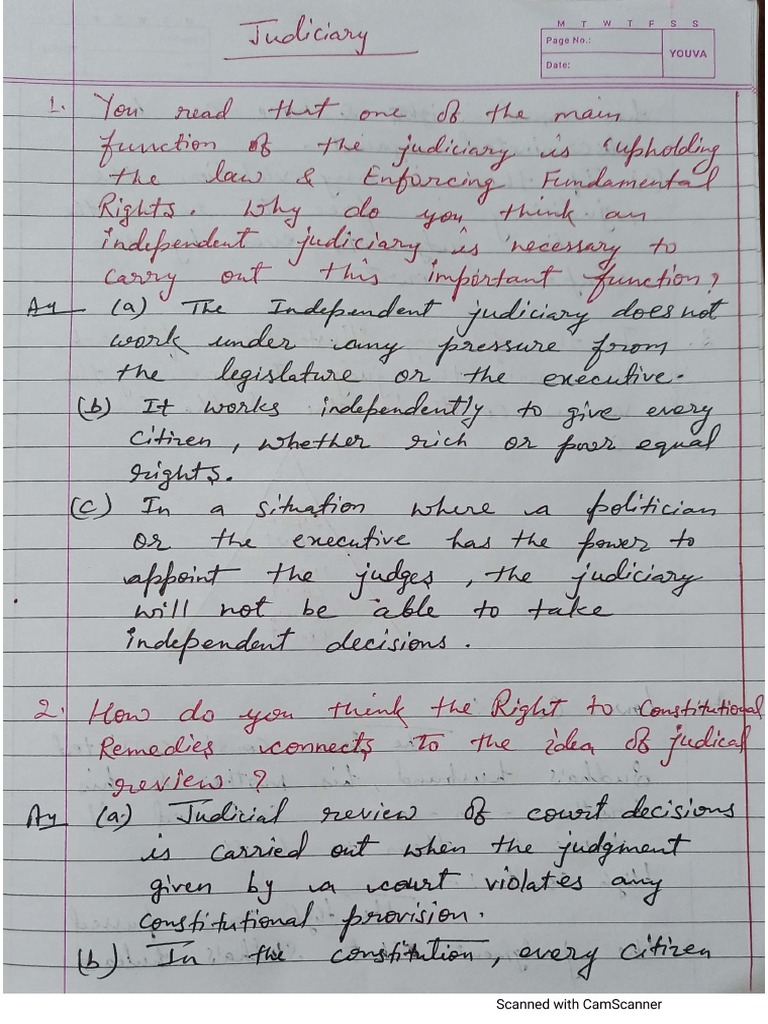 Judiciary
M T W T F S S
Page No.:
Date:
YOUVA
1. You read that one of the main
function of the judiciary is 'upholding
the law & Enforcing Fundamental
Rights. Why do you think an
independent judiciary is necessary to
carry out this important function?
(a) The Independent judiciary does not
work under any pressure from
the legislature or the executive.
(b) It works independently to give every
citizen, whether rich or poor equal
rights.
(c) In a situation where a politician
or the executive has the power to
appoint the judges, the judiciary
will not be able to take
independent decisions.
2. How do you think the Right to Constitutional
Remedies connects to the idea of judical
review?
(a) Judicial review of court decisions
is carried out when the judgment
given by a court violates any
constitutional provision.
(b) In the constitution, every citizen
Scanned with CamScanner